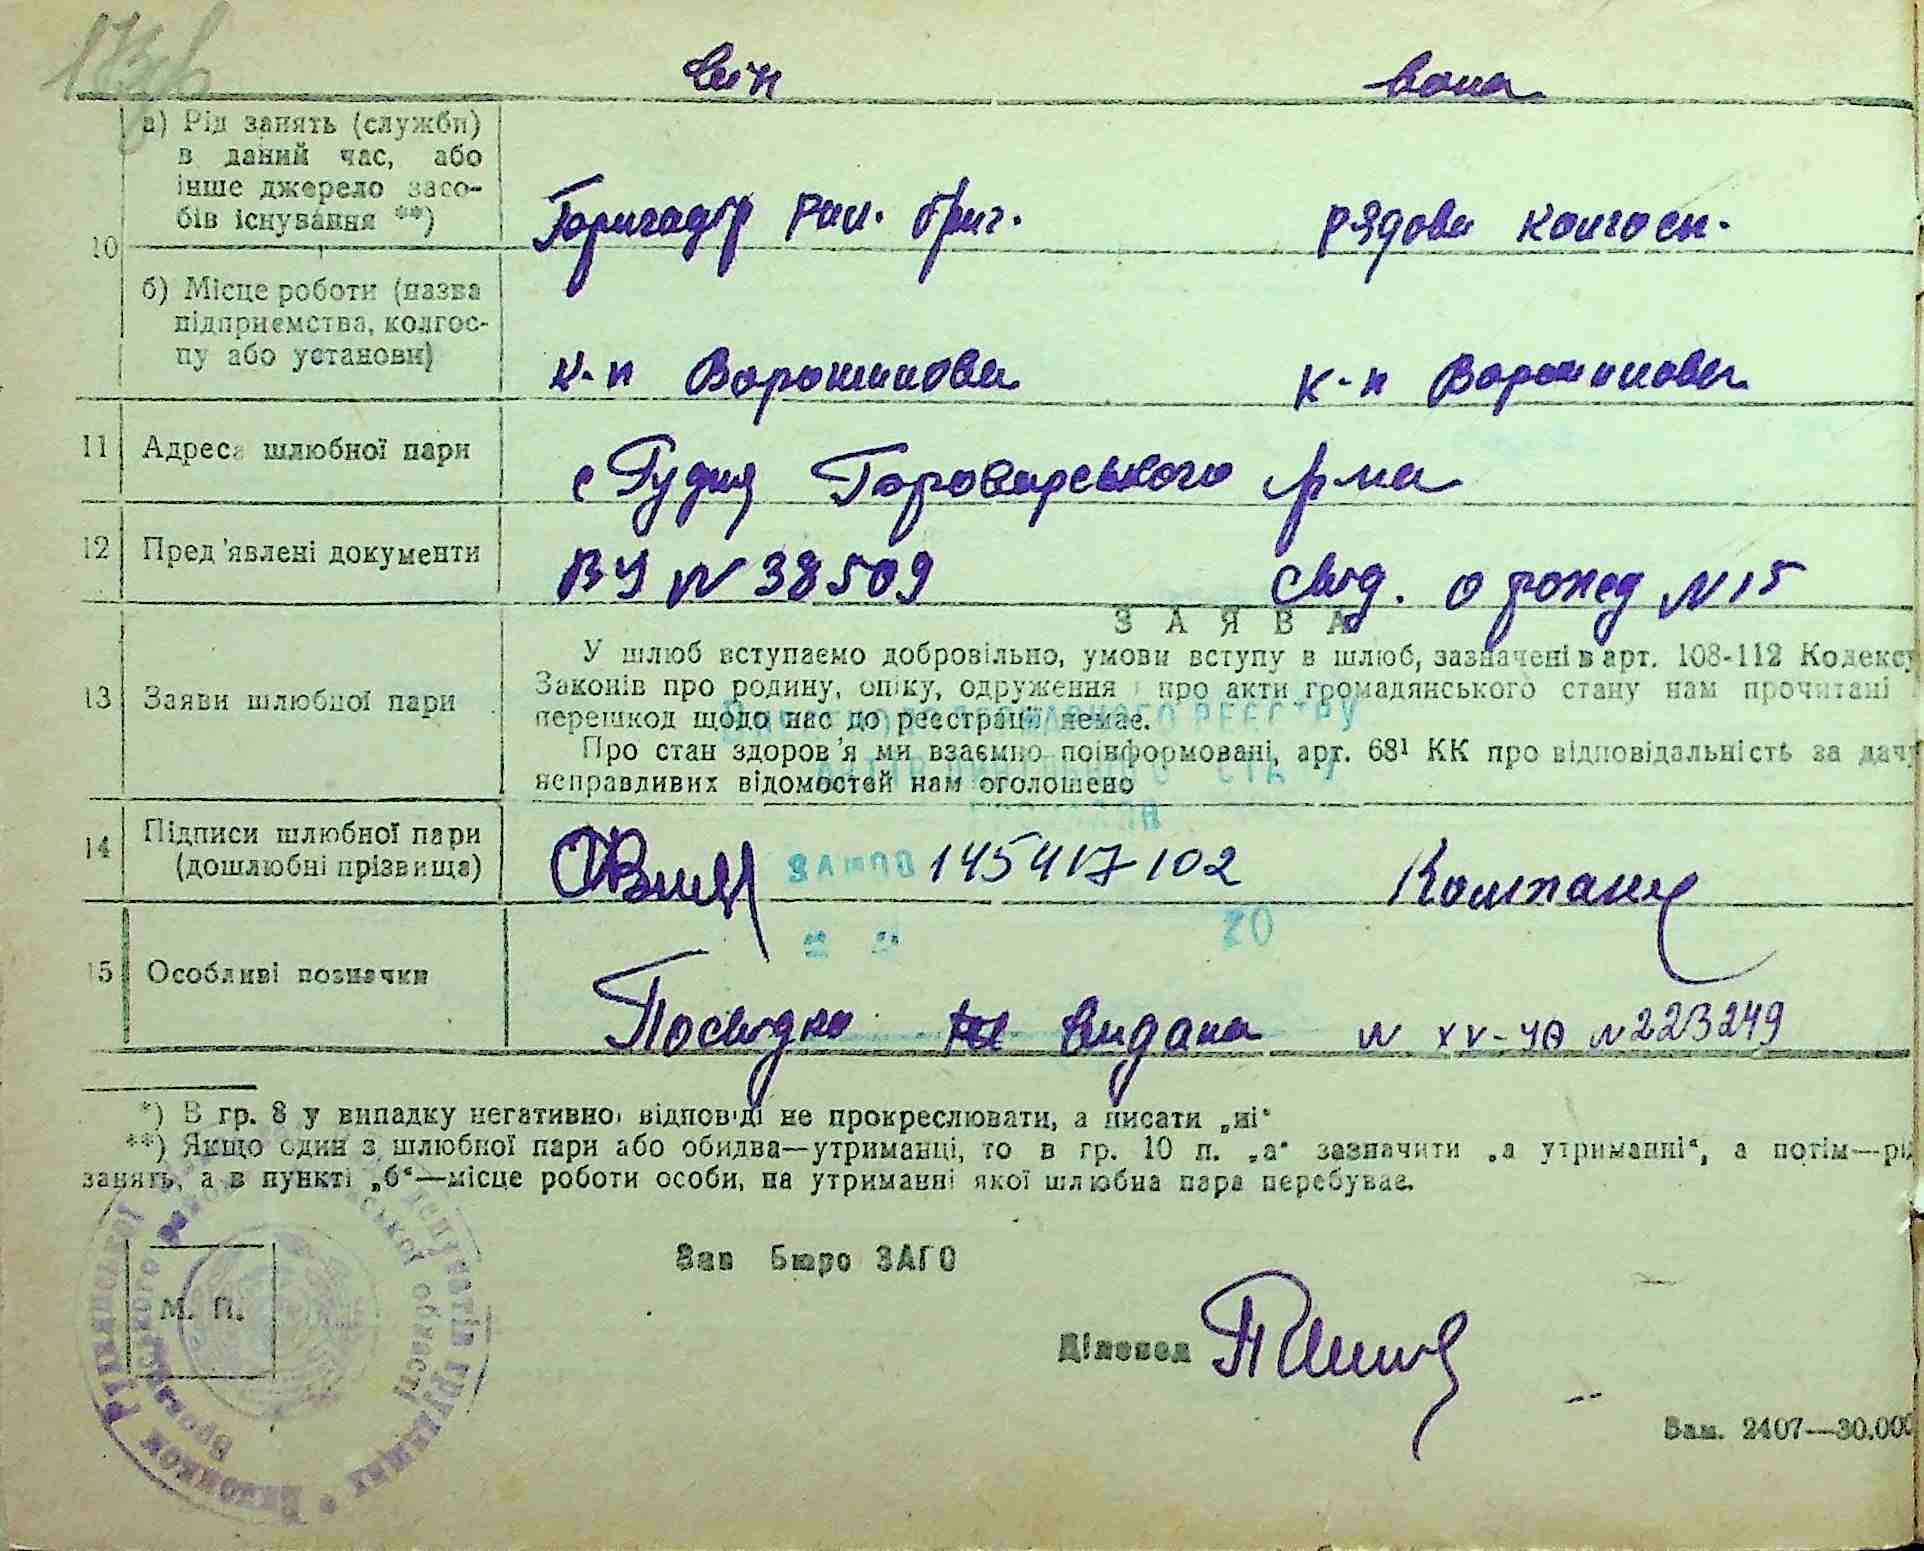 він вона
10 а) Рід занять (служби)
в даний час, або
інше джерело засо-
бів існування **)
Бригадір рил. бриг. рядова колгосп.
б) Місце роботи (назва
підприємства, колгос-
пу або установи)
к-п Ворошилова к-п Ворошилова
11 Адреса шлюбної пари
с Рудня Броварського р-на
12 Пред'явлені документи
ВУ № 38509 свід. о рожд № 15
ЗАЯВА
13 Заяви шлюбної пари
У шлюб вступаємо добровільно, умови вступу в шлюб, зазначені в арт. 108-112 Кодексу
Законів про родину, опіку, одруження і про акти громадянського стану нам прочитані
перешкод щодо нас до реєстрації немає.
Про стан здоров'я ми взаємно поінформовані, арт. 68¹ КК про відповідальність за дачу
неправдивих відомостей нам оголошено
ДЕРЖАВНОГО РЕЄСТРУ
14 Підписи шлюбної пари
(дошлюбні прізвища)
145417102
20
15 Особливі позначки
Посвідка видана № XV-ЧЮ № 223249
*) В гр. 8 у випадку негативної відповіді не прокреслювати, а писати „ні“
**) Якщо один з шлюбної пари або обидва—утриманці, то в гр. 10 п. „а“ зазначити „а утриманні“, а потім—рід
занять, а в пункті „б“—місце роботи особи, на утриманні якої шлюбна пара перебуває.
М. П.
Зав Бюро ЗАГС
Діловод
Зам. 2407—30.000